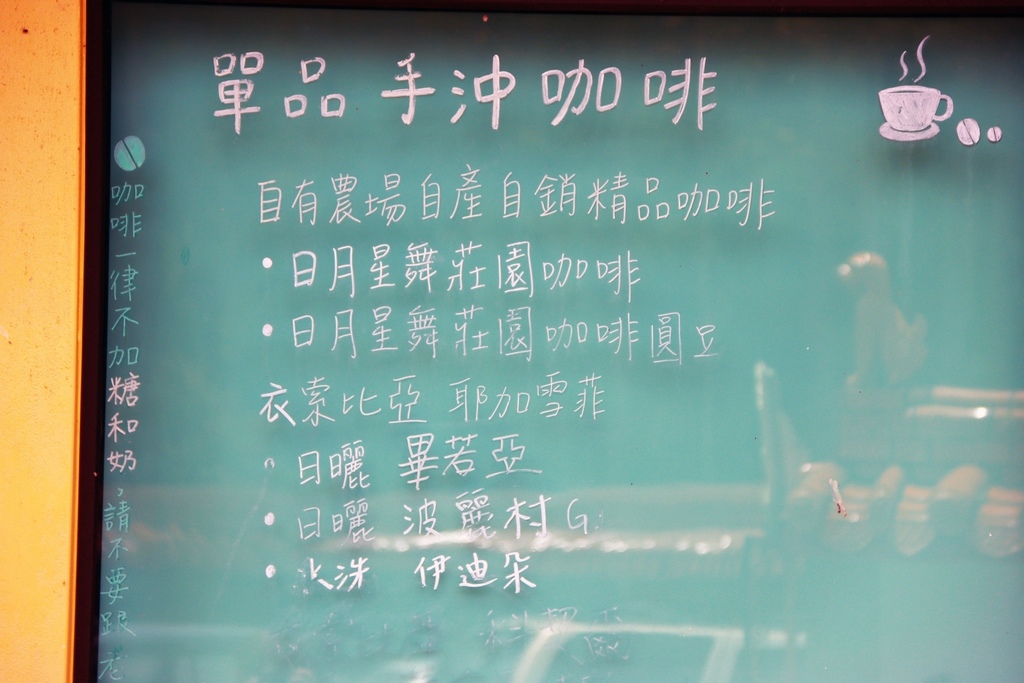 單品 手沖咖啡
自有農場自產自銷精品咖啡
•日月星舞莊園咖啡
•日月星舞莊園咖啡圓豆
衣索比亞 耶加雪菲
•日曬 畢若亞
•日曬 波麗村G
•水洗 伊迪朵
咖啡一律不加糖和奶,請不要跟老